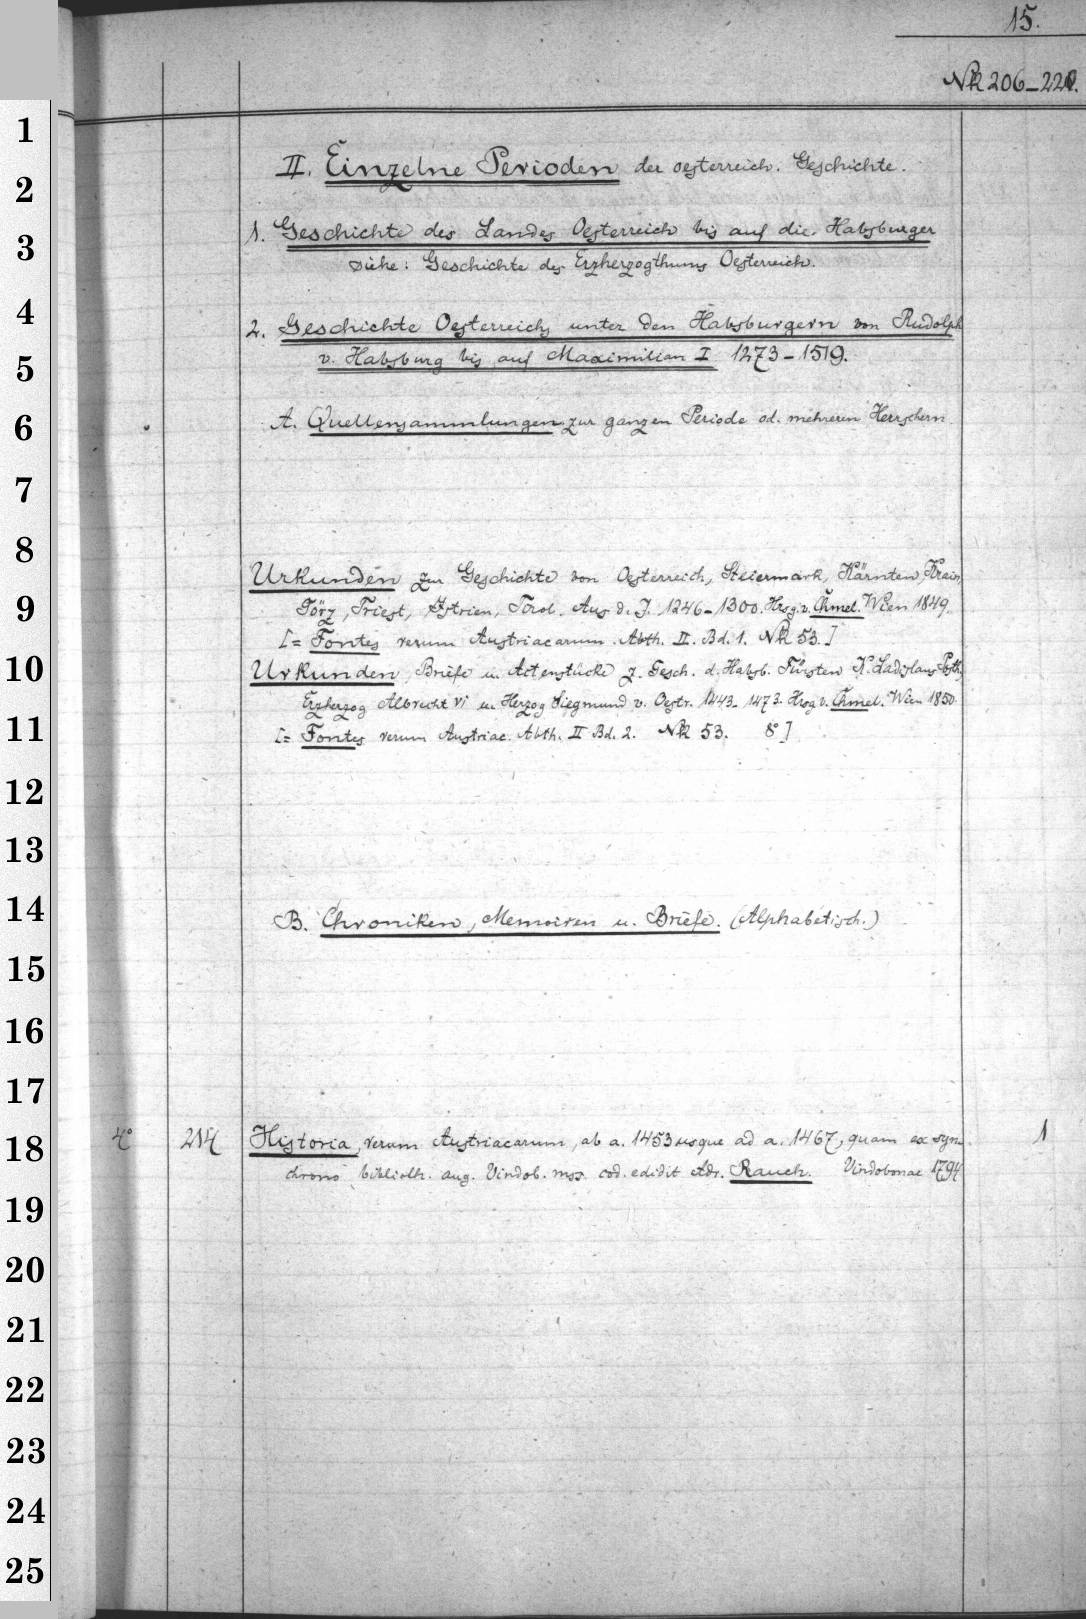 15.
Nk 206-221.
II. Einzelne Perioden der oesterreich. Geschichte.
1. Geschichte des Landes Oesterreich bis auf die Habsburger
siehe: Geschichte des Erzherzogthums Oesterreich.
2. Geschichte Oesterreichs unter den Habsburgern von Rudolph
v. Habsburg bis auf Maximilian I 1273-1519.
A. Quellensammlungen zur ganzen Periode od. mehreren Herrschern
Urkunden zur Geschichte von Oesterreich, Steiermark, Kärnten, Krain,
Görz, Triest, Istrien, Tirol. Aus d. J. 1246-1300. Hrsg. v. Chmel. Wien 1849.
[= Fontes rerum Austriacarum. Abth. II. Bd. 1. Nk 53.]
Urkunden, Briefe u. Actenstücke z. Gesch. d. Habsb. Fürsten K. Ladislaus Posth.,
Erzherzog Albrecht VI u. Herzog Siegmund v. Oestr. 1443-1473. Hrsg v. Chmel. Wien 1850.
[= Fontes rerum Austriac. Abth. II Bd. 2. Nk 53. 8°]
B. Chroniken, Memoiren u. Briefe. (Alphabetisch.)
4° 214 Historia rerum Austriacarum, ab a. 1453 usque ad a. 1467, quam ex syn- 1
chrono biblioth. aug. Vindob. mss. cod. edidit Adr. Rauch. Vindobonae 1794
1
2
3
4
5
6
7
8
9
10
11
12
13
14
15
16
17
18
19
20
21
22
23
24
25